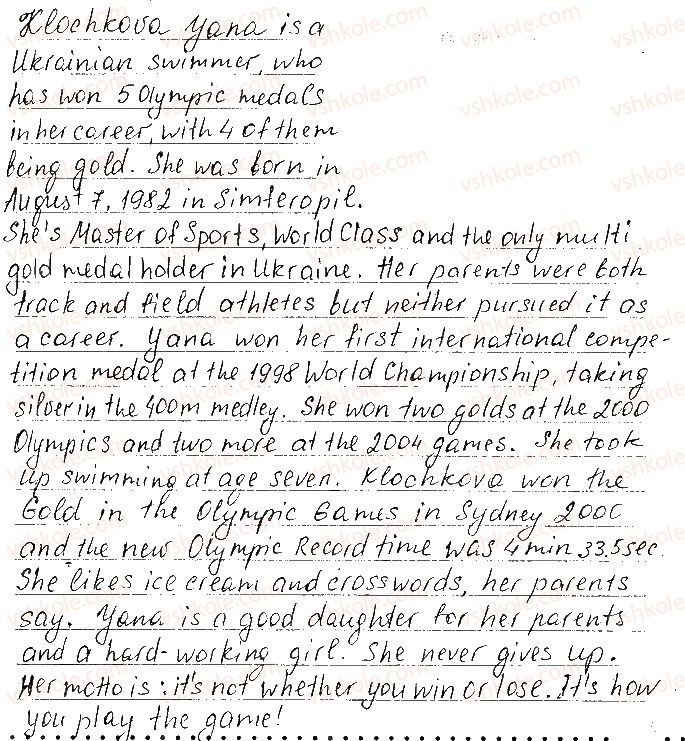 Klochkova Yana is a
Ukrainian swimmer, who
has won 5 Olympic medals
in her career, with 4 of them
being gold. She was born in
August 7, 1982 in Simferopil.
She's Master of Sports, World Class and the only multi
gold medal holder in Ukraine. Her parents were both
track and field athletes but neither pursued it as
a career. Yana won her first international compe-
tition medal at the 1998 World Championship, taking
silver in the 400m medley. She won two golds at the 2000
Olympics and two more at the 2004 games. She took
up swimming at age seven. Klochkova won the
Gold in the Olympic Games in Sydney 2000
and the new Olympic Record time was 4 min 33,5sec.
She likes ice cream and crosswords, her parents
say. Yana is a good daughter for her parents
and a hard-working girl. She never gives up.
Her motto is: it's not whether you win or lose. It's how
you play the game!